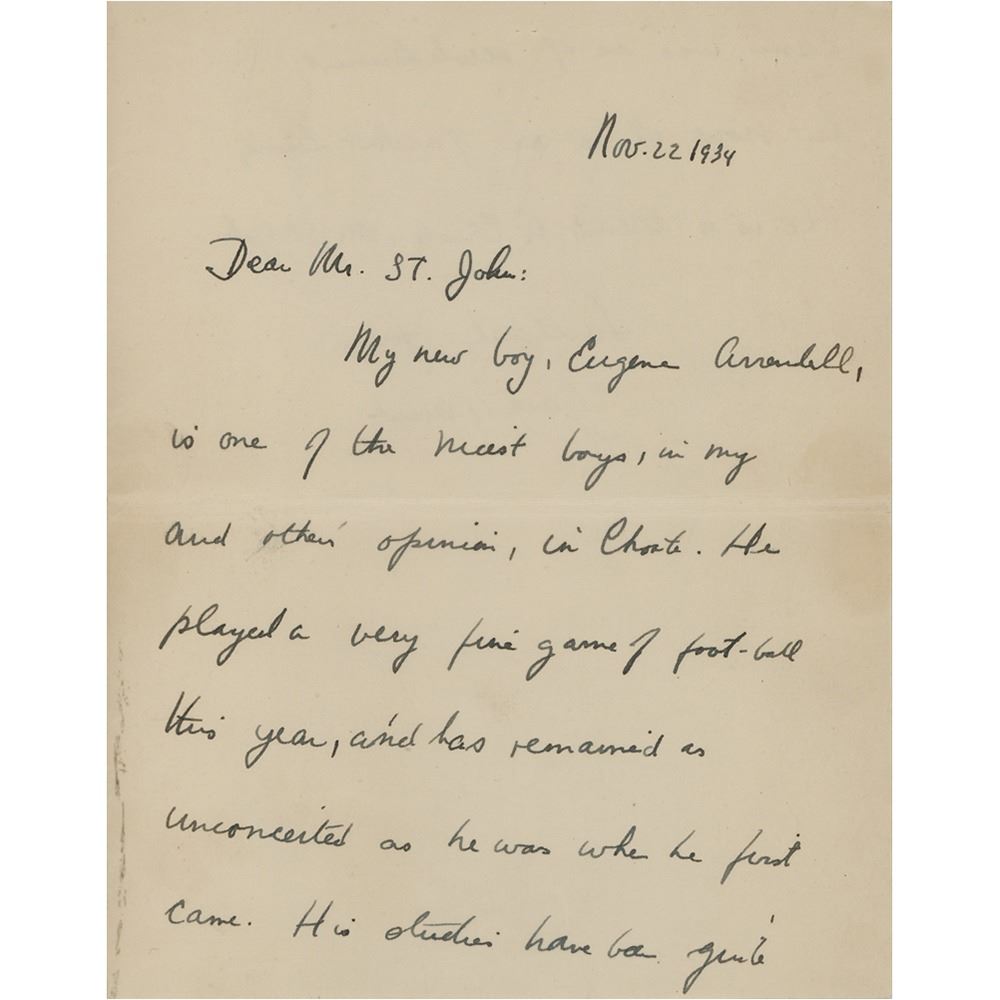 Nov. 22 1934
Dear Mr. ST. John:
My new boy, Eugene Arrendell,
is one of the nicest boys, in my
and others opinion, in Choate. He
played a very fine game of foot-ball
this year, and has remained as
unconceited as he was when he first
came. His studies have been quite